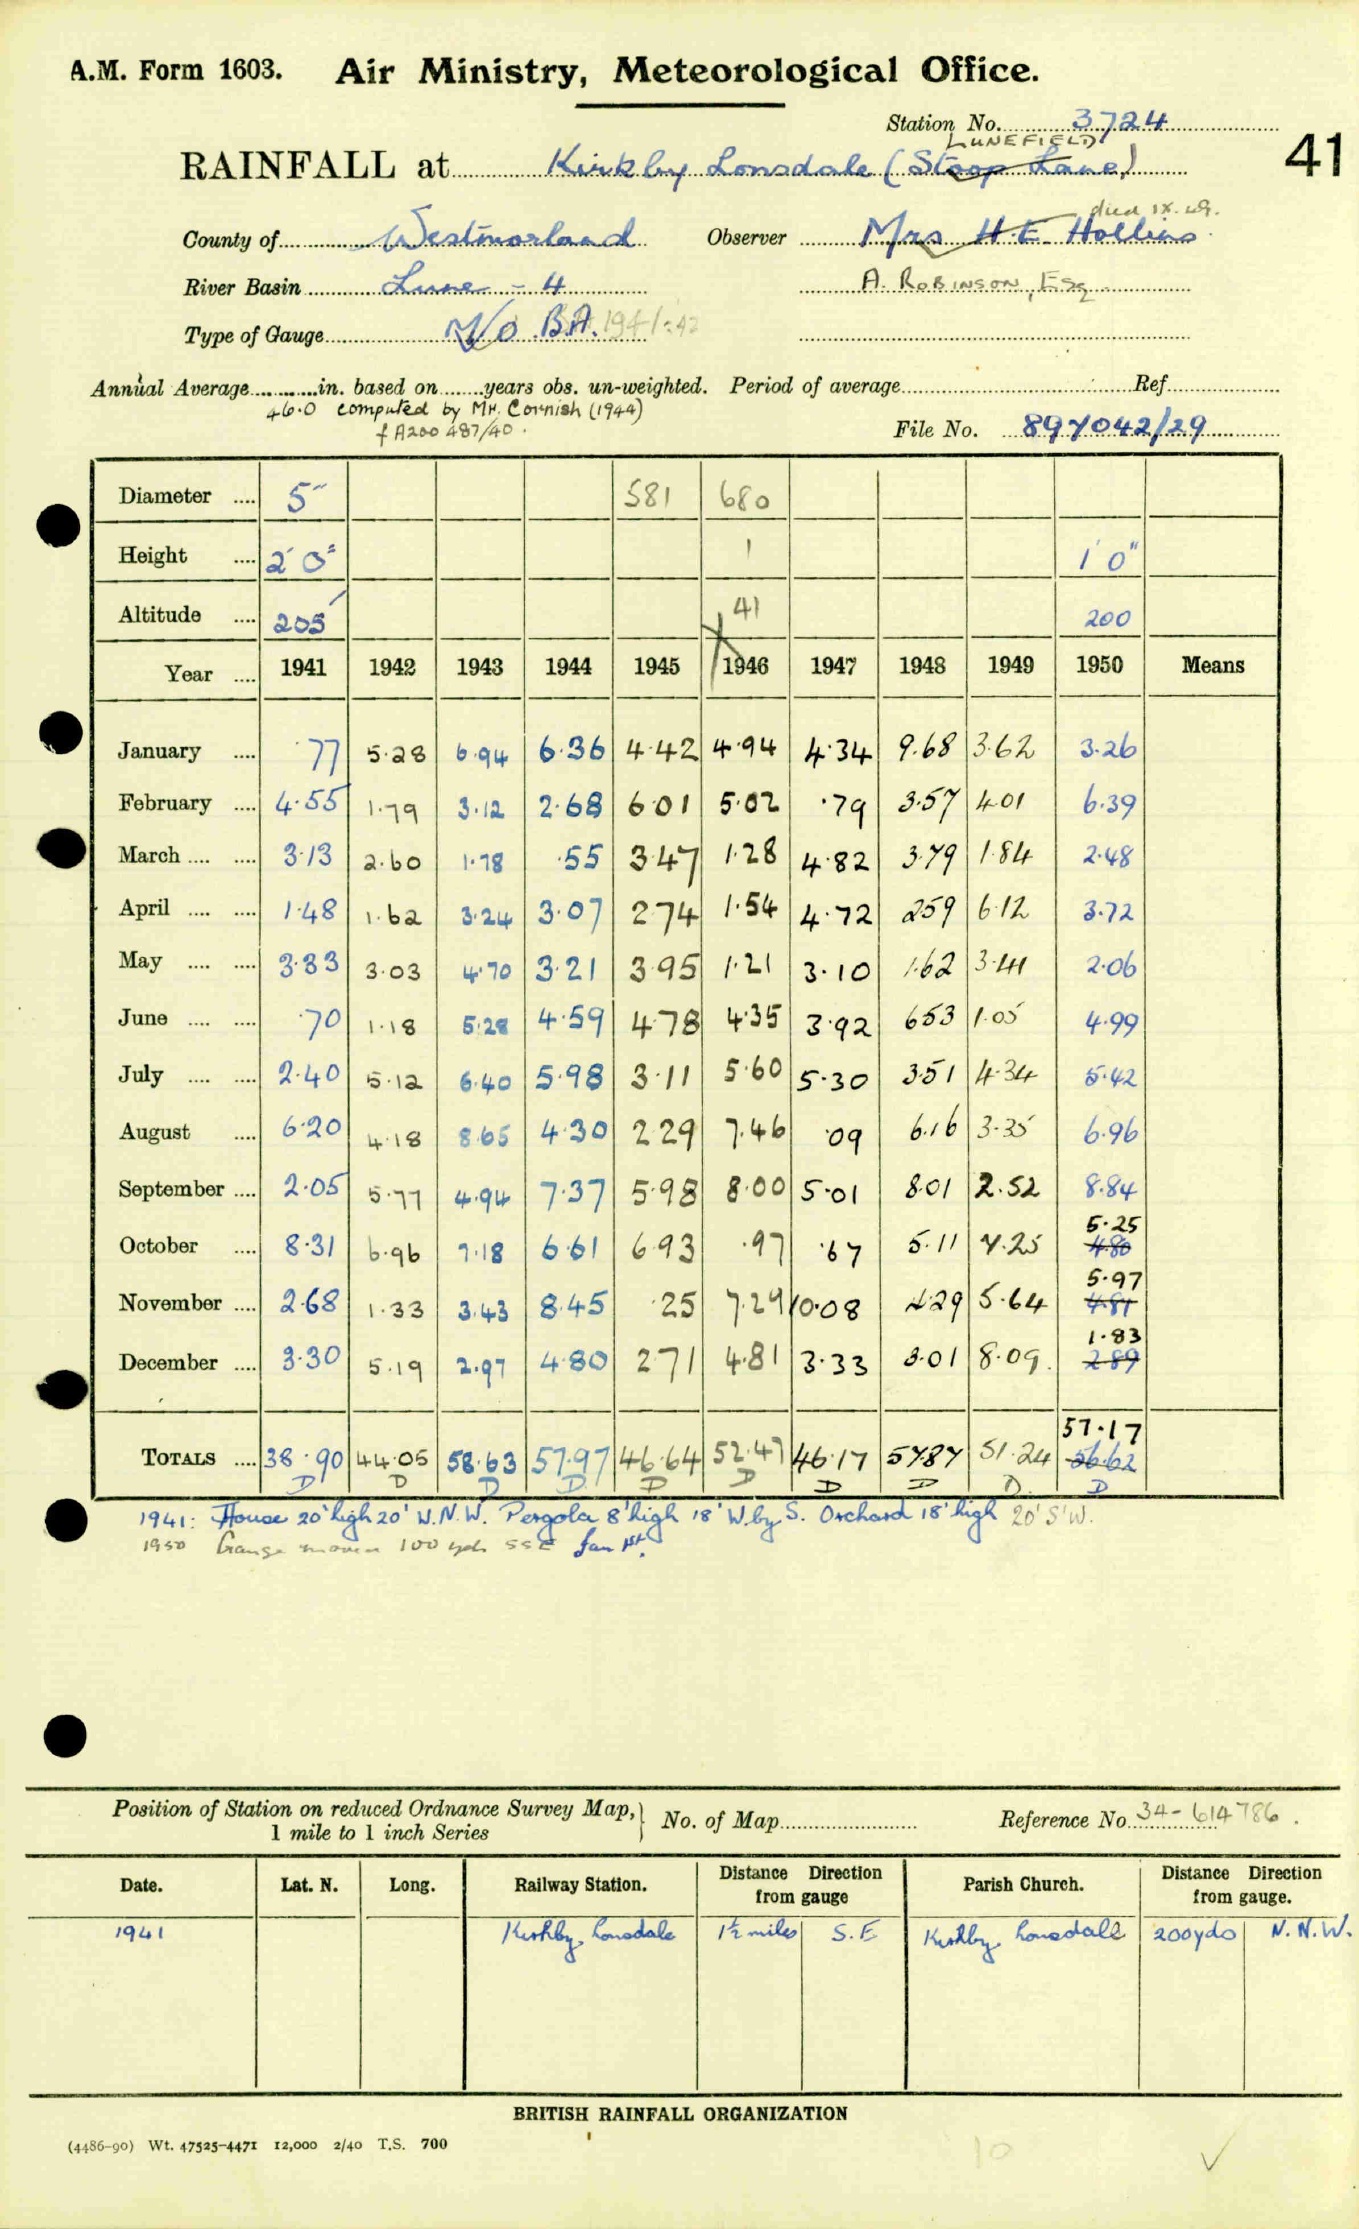 A.M. Form 1603. Air Ministry, Meteorological Office.
Station No. 3724
LUNEFIELD
41
RAINFALL at Kirkby Lonsdale (Stoop Lane)
died IX.49.
County of Westmorland Observer Mrs H.E. Hollins
River Basin Lune - 4 A. ROBINSON, Esq
Type of Gauge M/O B.A. 1941:42
Annual Average in. based on years obs. un-weighted. Period of average Ref
46.0 computed by Mr. Cornish (1944)
f A200 487/40.
File No. 897042/29
Diameter 5" 581 680
Height 2' 0" 1 1' 0"
Altitude 205' 41 200
Year 1941 1942 1943 1944 1945 1946 1947 1948 1949 1950 Means
January .77 5.28 6.94 6.36 4.42 4.94 4.34 9.68 3.62 3.26
February 4.55 1.79 3.12 2.68 6.01 5.02 .79 3.57 4.01 6.39
March 3.13 2.60 1.78 .55 3.47 1.28 4.82 3.79 1.84 2.48
April 1.48 1.62 3.24 3.07 2.74 1.54 4.72 2.59 6.12 3.72
May 3.33 3.03 4.70 3.21 3.95 1.21 3.10 1.62 3.41 2.06
June .70 1.18 5.28 4.59 4.78 4.35 3.92 6.53 1.05 4.99
July 2.40 5.12 6.40 5.98 3.11 5.60 5.30 3.51 4.34 5.42
August 6.20 4.18 8.65 4.30 2.29 7.46 .09 6.16 3.35 6.96
September 2.05 5.77 4.94 7.37 5.98 8.00 5.01 8.01 2.52 8.84
5.25
October 8.31 6.96 7.18 6.61 6.93 .97 .67 5.11 7.25 4.80
5.97
November 2.68 1.33 3.43 8.45 .25 7.29 10.08 4.29 5.64 4.81
1.83
December 3.30 5.19 2.97 4.80 2.71 4.81 3.33 3.01 8.09 2.89
57.17
TOTALS 38.90 44.05 58.63 57.97 46.64 52.47 46.17 57.87 51.24 56.62
D D D D D D D D D D
1941: House 20' high 20' W.N.W. Pergola 8' high 18' W by S. Orchard 18' high 20' S'W.
1950 Gauge moved 100 yds SSE Jan 1st.
Position of Station on reduced Ordnance Survey Map, No. of Map Reference No. 34-614786.
1 mile to 1 inch Series
Date. Lat. N. Long. Railway Station. Distance Direction from gauge Parish Church. Distance Direction from gauge.
1941 Kirkby Lonsdale 1½ miles S.E Kirkby Lonsdale 200yds N.N.W.
BRITISH RAINFALL ORGANIZATION
(4486-90) Wt. 47525-4471 12,000 2/40 T.S. 700
10